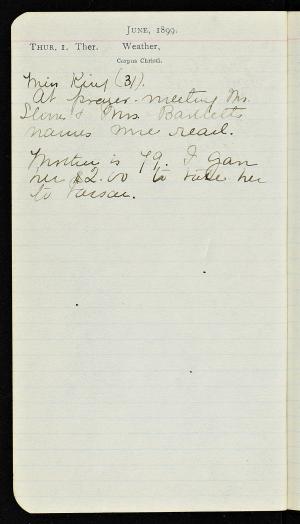 JUNE, 1899.
THUR. 1. Ther. Weather,
Corpus Christi.
Miss King (31).
At prayer-meeting Mr.
& Mrs. Bartlett's
names were read.
Mother is 79. I gave
her $2.00 to take her
to Vassar.